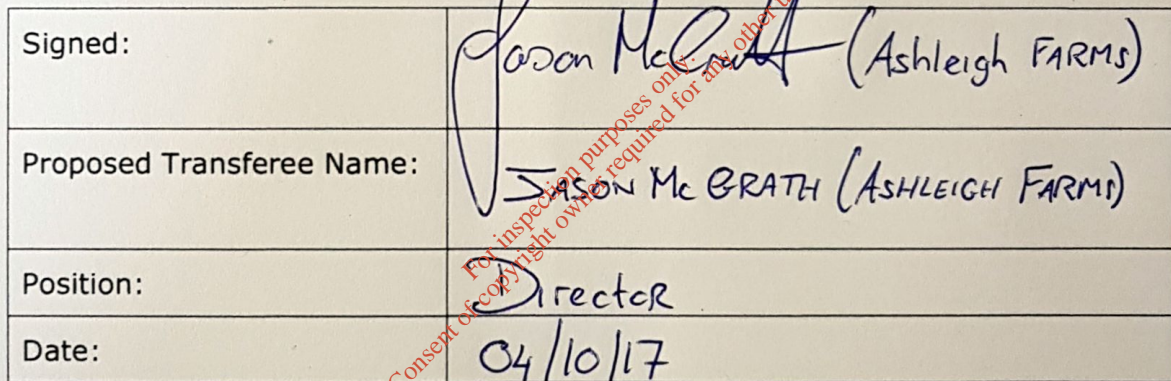 Signed: Jason McGrath (Ashleigh FARMS)
Proposed Transferee Name: JASON Mc GRATH (ASHLEIGH FARMS)
Position: Director
Date: 04/10/17
For inspection purposes only.
Consent of copyright owner required for any other u